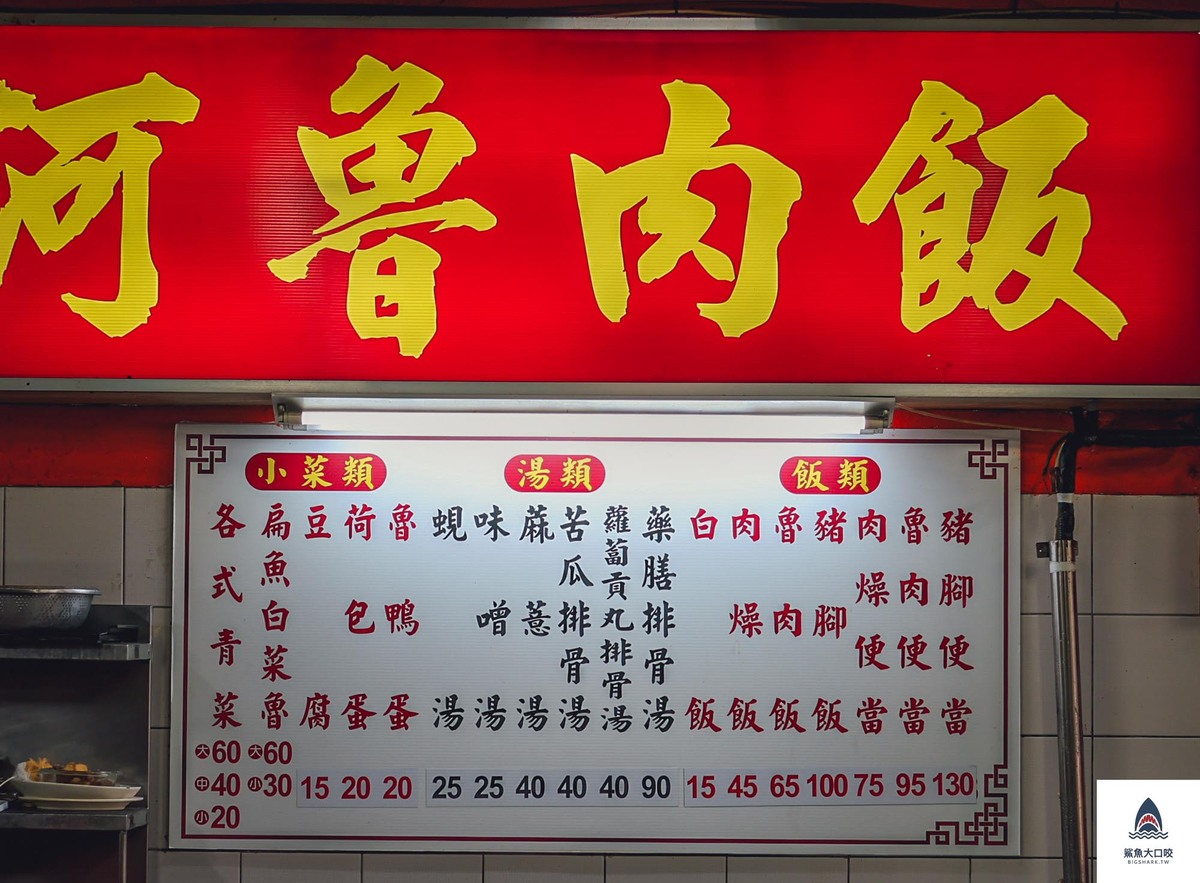 魯肉飯
飯類
豬腳便當 130
魯肉便當 95
肉燥便當 75
豬腳飯 100
魯肉飯 65
肉燥飯 45
白飯 15
湯類
藥膳排骨湯 90
蘿蔔貢丸排骨湯 40
苦瓜排骨湯 40
蔴薏湯 40
味噌湯 25
蜆湯 25
小菜類
魯鴨蛋 20
荷包蛋 20
豆腐 15
扁魚白菜魯 大60 小30
各式青菜 大60 中40 小20
鯊魚大口咬
BIGSHARK.TW